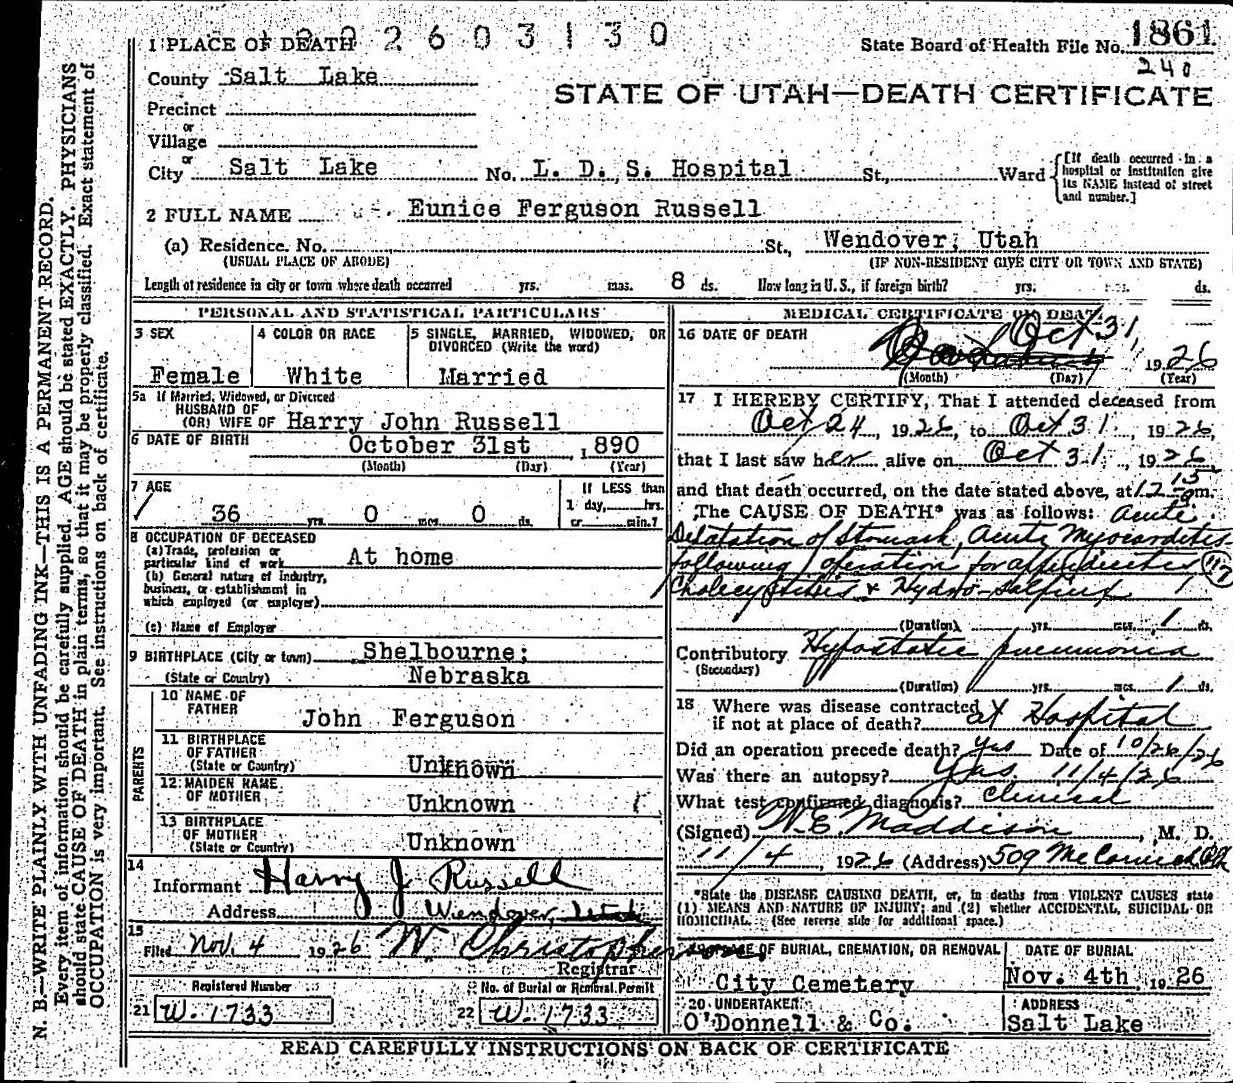 2603130
1 PLACE OF DEATH
State Board of Health File No. 1861
240
County Salt Lake
STATE OF UTAH—DEATH CERTIFICATE
Precinct
or
Village
or
City Salt Lake No. L. D. S. Hospital St., Ward
[If death occurred in a hospital or institution give its NAME instead of street and number.]
2 FULL NAME Eunice Ferguson Russell
(a) Residence. No. St., Wendover, Utah
(USUAL PLACE OF ABODE) (IF NON-RESIDENT GIVE CITY OR TOWN AND STATE)
Length of residence in city or town where death occurred yrs. mos. 8 ds. How long in U. S., if foreign birth? yrs. mos. ds.
PERSONAL AND STATISTICAL PARTICULARS
3 SEX
Female
4 COLOR OR RACE
White
5 SINGLE, MARRIED, WIDOWED, OR
DIVORCED (Write the word)
Married
5a If Married, Widowed, or Divorced
HUSBAND OF
(OR) WIFE OF Harry John Russell
6 DATE OF BIRTH October 31st, 1890
(Month) (Day) (Year)
7 AGE
36 yrs. 0 mos. 0 ds.
If LESS than
1 day, hrs.
or min.?
8 OCCUPATION OF DECEASED
(a) Trade, profession or
particular kind of work At home
(b) General nature of industry,
business, or establishment in
which employed (or employer)
(c) Name of Employer
9 BIRTHPLACE (City or town) Shelbourne;
(State or Country) Nebraska
PARENTS
10 NAME OF
FATHER John Ferguson
11 BIRTHPLACE
OF FATHER
(State or Country) Unknown
12 MAIDEN NAME
OF MOTHER Unknown
13 BIRTHPLACE
OF MOTHER
(State or Country) Unknown
14
Informant Harry J Russell
Address Wendover, Utah
15
Filed Nov. 4 1926 W. Christopherson
Registrar
Registered Number
21 W. 1733
No. of Burial or Removal Permit
22 W. 1733
MEDICAL CERTIFICATE OF DEATH
16 DATE OF DEATH
Oct 31, 1926
(Month) (Day) (Year)
17 I HEREBY CERTIFY, That I attended deceased from
Oct 24, 1926, to Oct 31, 1926,
that I last saw her alive on Oct 31, 1926
and that death occurred, on the date stated above, at 12 15 m.
The CAUSE OF DEATH* was as follows: Acute
Dilatation of Stomach, Acute Myocarditis
following operation for appendicitis 117
Cholecystitis & Hydro-Salpinx
(Duration) yrs. mos. 1 ds.
Contributory Hypostatic pneumonia
(Secondary)
(Duration) yrs. mos. 1 ds.
18 Where was disease contracted
if not at place of death? at Hospital
Did an operation precede death? yes Date of 10/26/26
Was there an autopsy? Yes 11/4/26
What test confirmed diagnosis? Clinical
(Signed) W. E. Maddison, M. D.
11/4 1926 (Address) 509 McCornick Blk
*State the DISEASE CAUSING DEATH, or, in deaths from VIOLENT CAUSES state
(1) MEANS AND NATURE OF INJURY; and (2) whether ACCIDENTAL, SUICIDAL OR
HOMICIDAL. (See reverse side for additional space.)
OF BURIAL, CREMATION, OR REMOVAL
City Cemetery
DATE OF BURIAL
Nov. 4th, 1926
20 UNDERTAKER
O'Donnell & Co.
ADDRESS
Salt Lake
READ CAREFULLY INSTRUCTIONS ON BACK OF CERTIFICATE
N. B.—WRITE PLAINLY WITH UNFADING INK—THIS IS A PERMANENT RECORD.
Every item of information should be carefully supplied. AGE should be stated EXACTLY. PHYSICIANS
should state CAUSE OF DEATH in plain terms, so that it may be properly classified. Exact statement of
OCCUPATION is very important. See instructions on back of certificate.